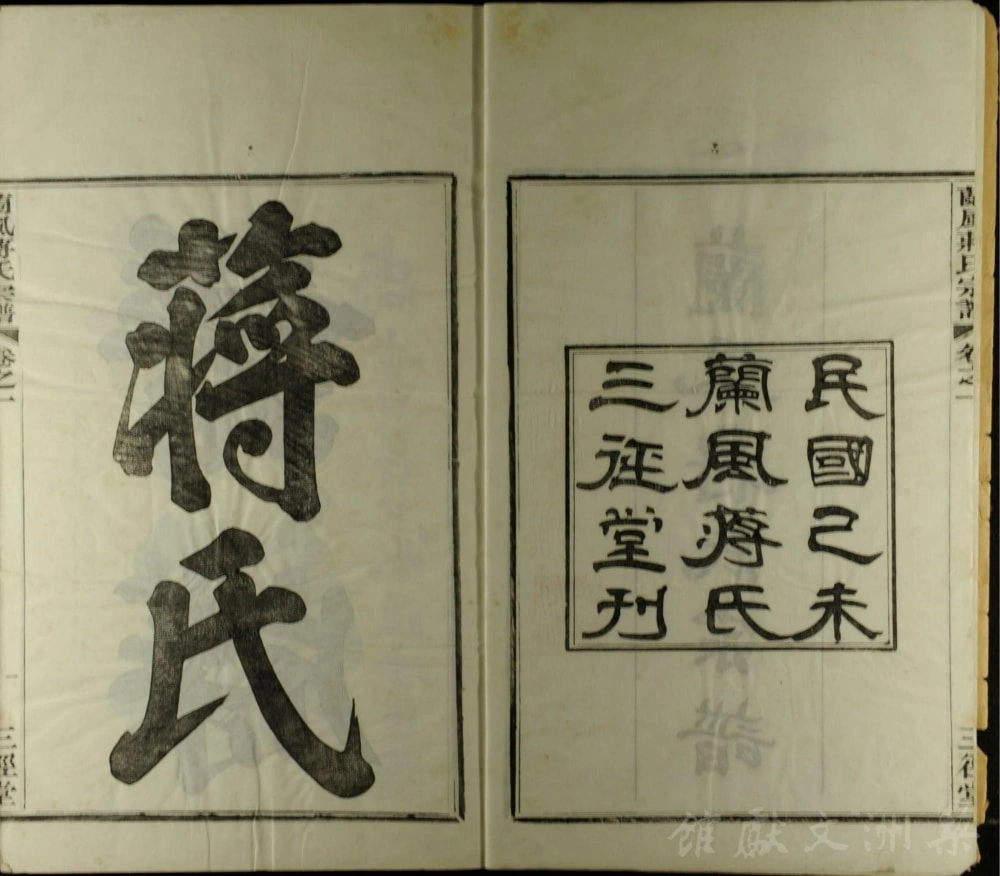 蘭風蔣氏宗譜 卷之一 三徑堂
民國己未
蘭風蔣氏
三徑堂刊
蔣氏
蘭風蔣氏宗譜 卷之一 一 三徑堂
梨洲文獻館